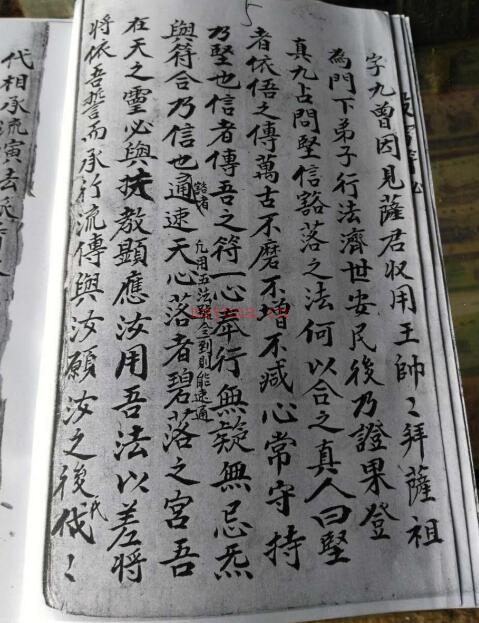 5
字九曾因見薩君収用王帥〻拜薩祖
為門下弟子行法濟世安民後乃證果登
真九占問堅信豁落之法何以合之真人曰堅
者依悟之傳萬古不磨不增不减心常守持
乃堅也信者傳吾之符一心奉行無疑無忌炁
與符合乃信也豁者通速天心落者碧落之宮吾
凡用五法 令到則能速通
在天之靈必與扶教顯應汝用吾法以差將
將依吾誓而承行流傳與汝願汝之後氏代〻
代相承流演去